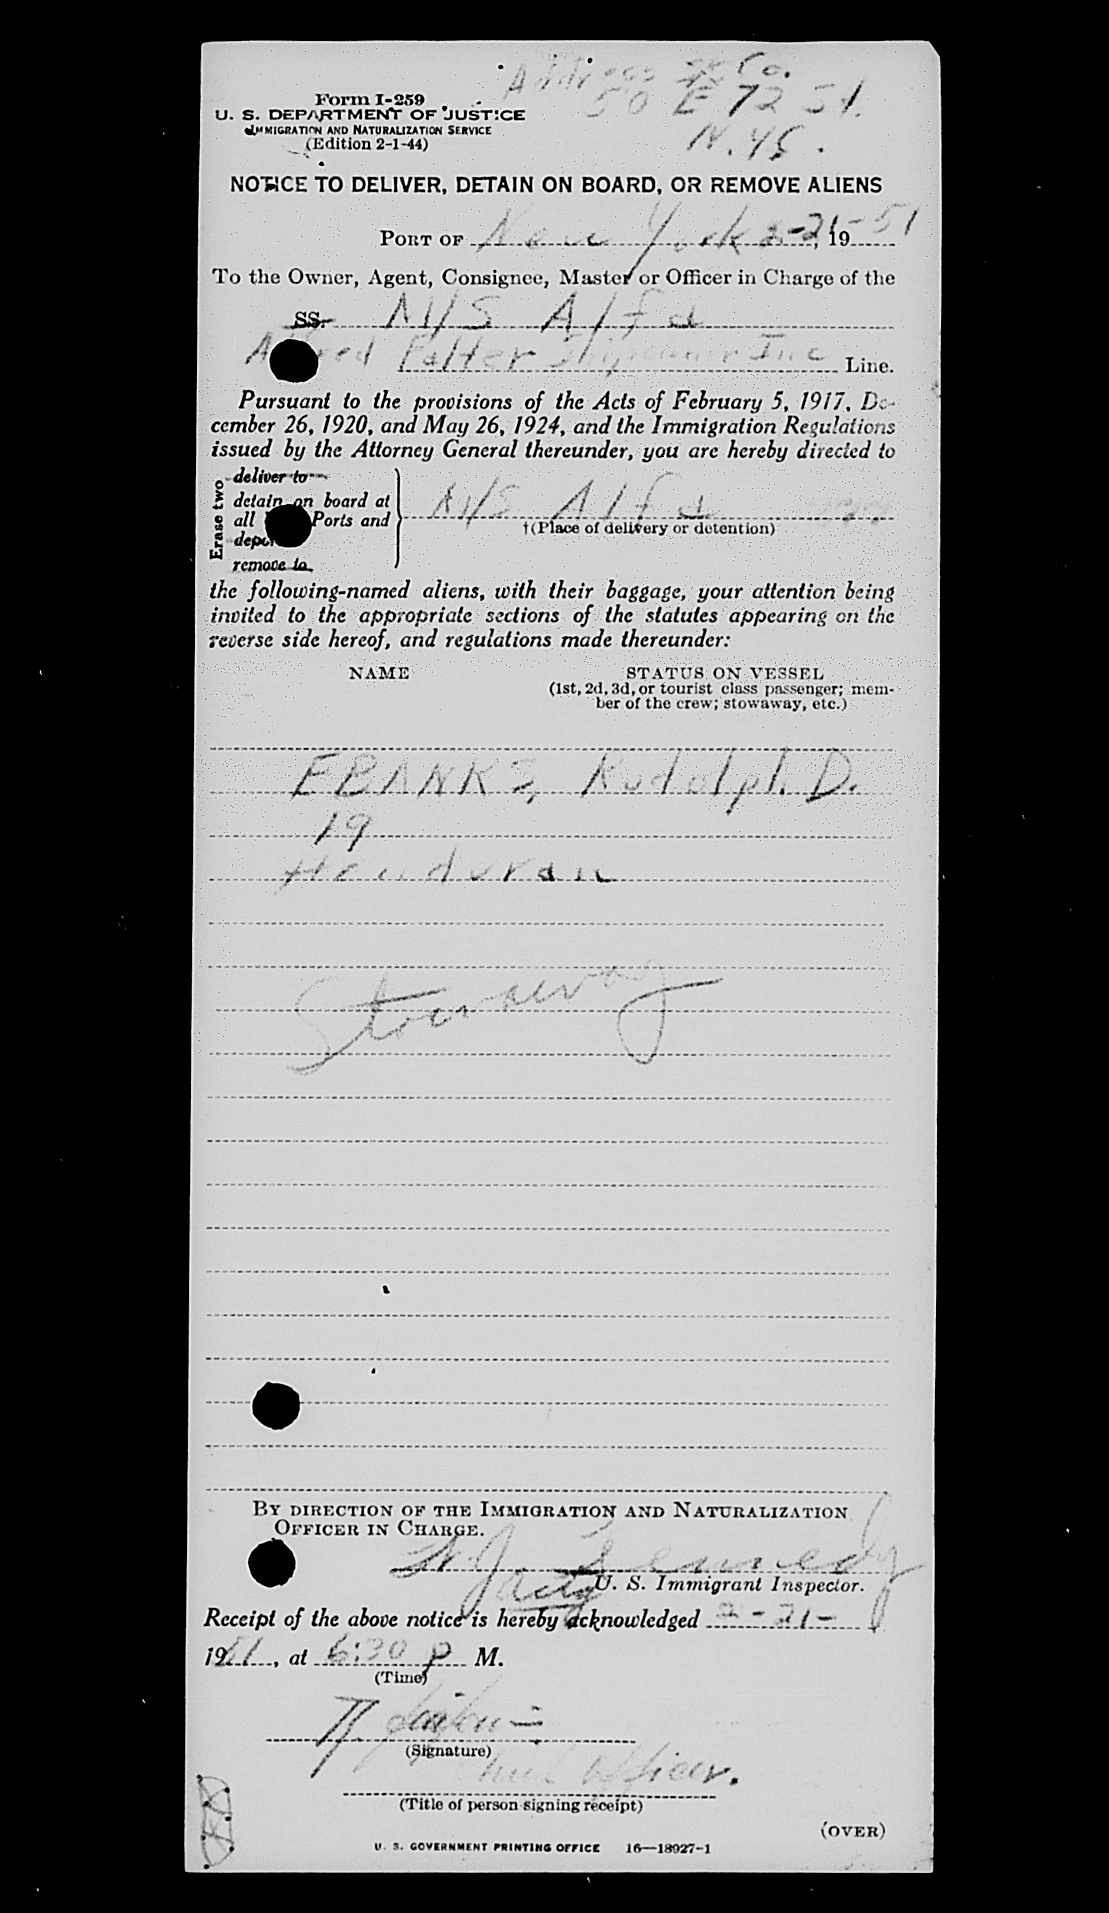 Address % Co.
50 E 72 St.
N.Y.C.
Form I-259
U. S. DEPARTMENT OF JUSTICE
IMMIGRATION AND NATURALIZATION SERVICE
(Edition 2-1-44)
NOTICE TO DELIVER, DETAIN ON BOARD, OR REMOVE ALIENS
PORT OF New York 2-21-, 19 51
To the Owner, Agent, Consignee, Master or Officer in Charge of the
SS. M/S Alfa
Inc Line.
Pursuant to the provisions of the Acts of February 5, 1917, De-
cember 26, 1920, and May 26, 1924, and the Immigration Regulations
issued by the Attorney General thereunder, you are hereby directed to
Erase two
deliver to
detain on board at
all Ports and
remove to
M/S Alfa
†(Place of delivery or detention)
the following-named aliens, with their baggage, your attention being
invited to the appropriate sections of the statutes appearing on the
reverse side hereof, and regulations made thereunder:
NAME STATUS ON VESSEL
(1st, 2d, 3d, or tourist class passenger; mem-
ber of the crew; stowaway, etc.)
EBANKS, Rudolph D.
19
Honduran
Stowaway
BY DIRECTION OF THE IMMIGRATION AND NATURALIZATION
OFFICER IN CHARGE.
Kennedy
U. S. Immigrant Inspector.
Receipt of the above notice is hereby acknowledged 2-21-
1951, at 6:30 P M.
(Time)
(Signature)
Chief Officer.
(Title of person signing receipt)
(OVER)
U. S. GOVERNMENT PRINTING OFFICE 16—18927-1